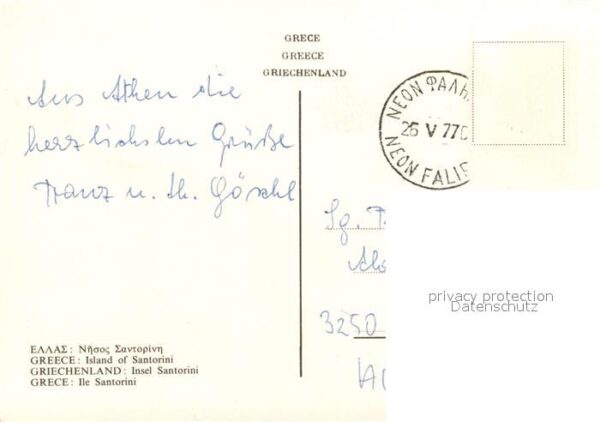 GRECE
GREECE
GRIECHENLAND
ΝΕΟΝ ΦΑΛΗ
26 V 77
NEON FALIR
Aus Athen die
herzlichsten Grüße
Franz u. th. Göschl
3250
privacy protection
Datenschutz
ΕΛΛΑΣ: Νῆσος Σαντορίνη
GREECE: Island of Santorini
GRIECHENLAND: Insel Santorini
GRECE: Ile Santorini